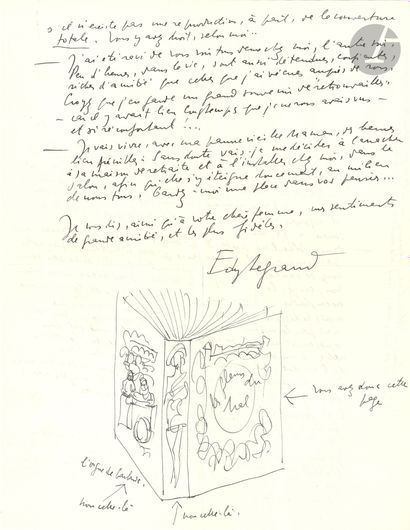 s'il n'existe pas une reproduction, à part, de la couverture
totale. Vous y avez droit, selon moi..
— J'ai été ravi de vous voir tous deux chez moi, l'autre soir.
Peu d'heures, dans la vie, sont aussi détendues, confiantes,
riches d'amitié que celles que j'ai vécues auprès de vous.
Croyez que j'en garde un grand souvenir de "retrouvailles"
- car il y avait bien longtemps que je ne vous avais vus -
et si réconfortant ....
— Je vais vivre, avec ma pauvre vieille Maman, des heures
bien pénibles: sans doute vais-je me décider à l'arracher
à sa maison de retraite et à l'installer chez moi, dans le
salon, afin qu'elle s'y éteigne doucement, au milieu
de nous tous. Gardez-moi une place dans vos pensées...
Je vous dis, ainsi qu'à votre chère femme, mes sentiments
de grande amitié, et les plus fidèles.
Edy Legrand
Les fleurs du
Mal
vous avez donc cette
page
l'orgue de barbarie.
non celle-là
non celle-là.